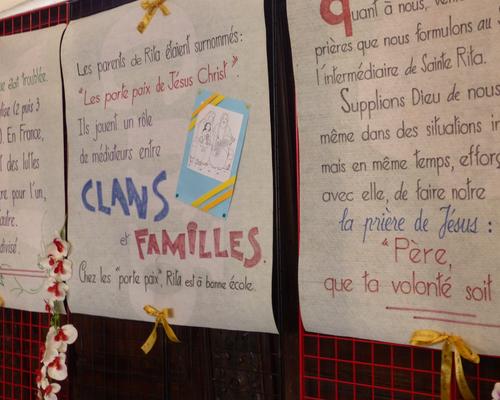 était troublée.
puis 3
). En France,
des luttes
pour l'un,
autre.
divisé.
Les parents de Rita étaient surnommés :
"Les porte paix de Jésus Christ".
Ils jouent un rôle
de médiateurs entre
CLANS
et FAMILLES.
Chez les "porte paix", Rita est à bonne école.
Quant à nous,
prières que nous formulons au
l'intermédiaire de Sainte Rita.
Supplions Dieu de nous
même dans des situations
mais en même temps,
avec elle, de faire notre
la prière de Jésus :
"Père,
que ta volonté soit